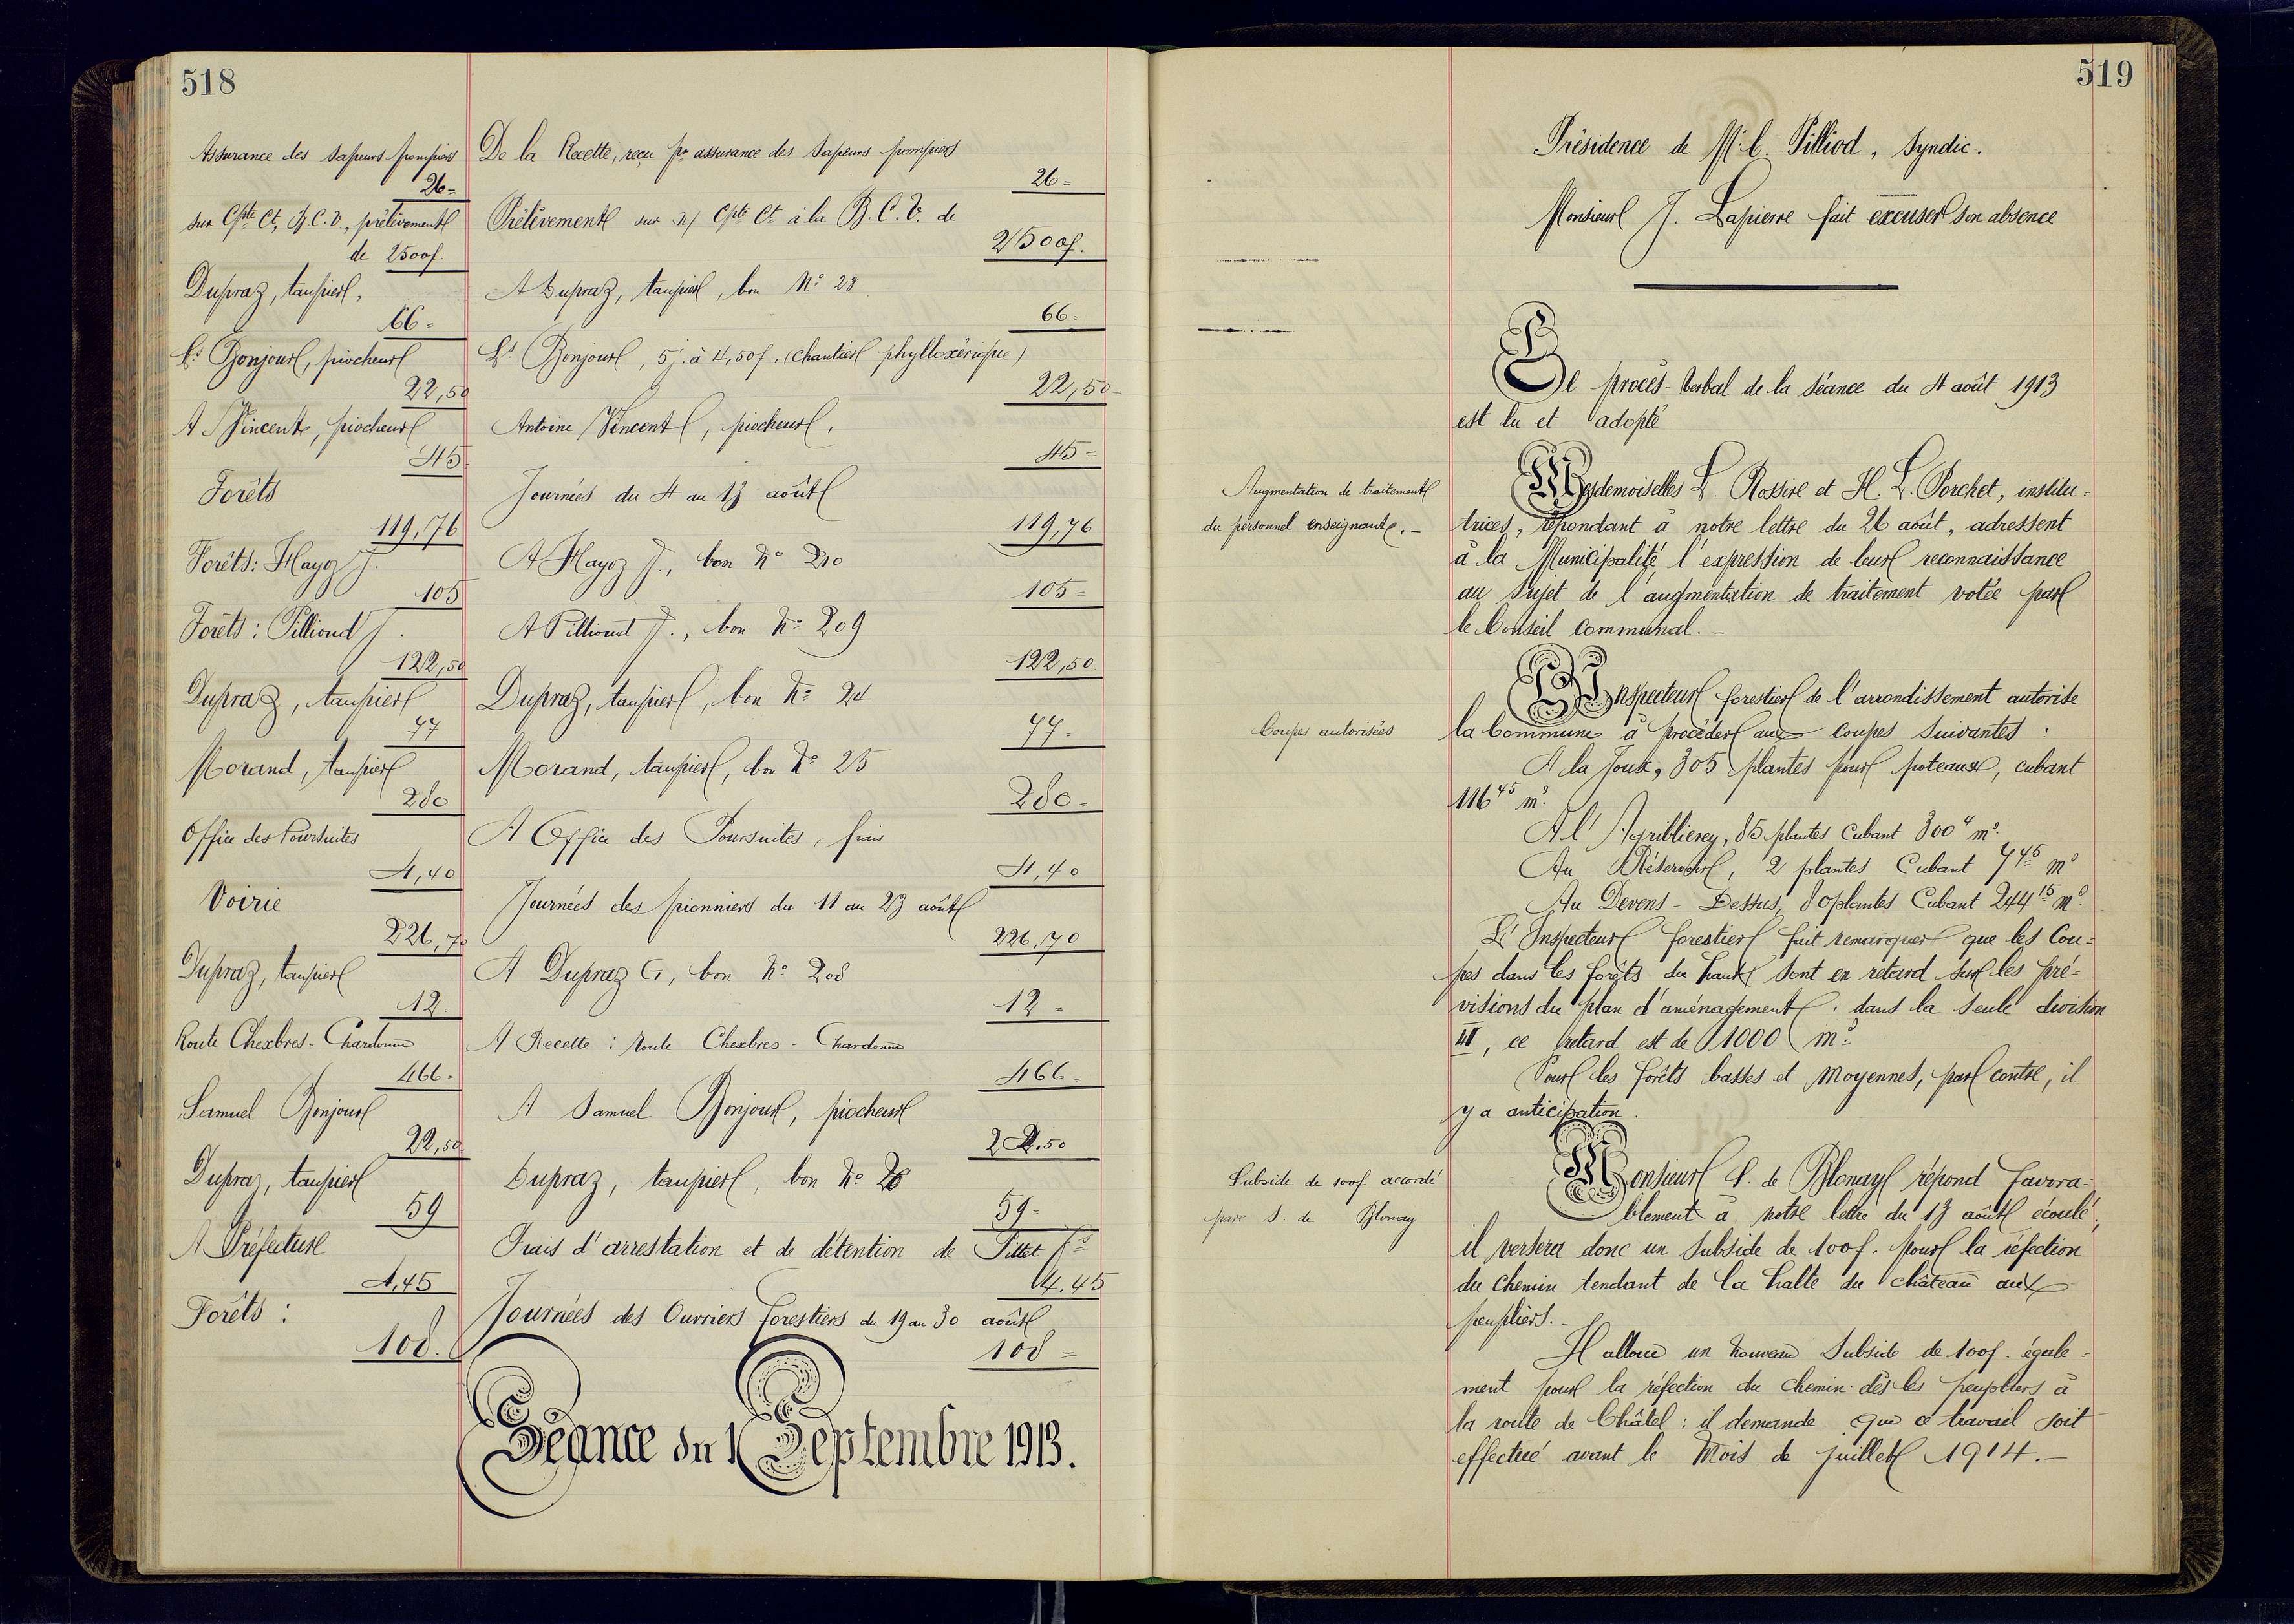 518
Assurance des sapeurs pompiers
26=
sur Cpte Ct, B.C.V., prélèvement
de 2500f.
Dupraz, taupier,
66=
Ls Bonjour, piocheur
22,50
A Vincent, piocheur
45
Forêts
119,76
Forêts: Hayoz J.
105
Forêts: Pilliond J.
122,50
Dupraz, taupier
77
Morand, taupier
280
Office des Poursuites
4,40
Voirie
226,70
Dupraz, taupier
12.
Route Chexbres-Chardonne
466=
Samuel Bonjour
22,50
Dupraz, taupier
59
A Préfecture
4,45
Forêts :
108.
De la Recette, reçu pr assurance des sapeurs pompiers
26=
Prélèvement sur n/ Cpte Ct à la B.C.V. de
2500f.
A Dupraz, taupier, bon No 23
66=
Ls Bonjour, 5 j. à 4,50f. (chantier phylloxérique)
22,50
Antoine Vincent, piocheur,
45=
Journées du 4 au 13 août
119,76
A Hayoz J., bon No 210
105=
A Pilliond J., bon No 209
122,50
Dupraz, taupier, bon No 24
77=
Morand, taupier, bon No 25
280=
A Office des Poursuites, frais
4,40
Journées des pionniers du 11 au 23 août
226,70
A Dupraz G, bon No 208
12=
A Recette : route Chexbres-Chardonne
466=
A Samuel Bonjour, piocheur
22.50
Dupraz, taupier, bon No 26
59=
Frais d'arrestation et de détention de Pittet
4.45
Journées des Ouvriers forestiers du 19 au 30 août
108=
Séance du 1 Septembre 1913.
519
Présidence de Mr C. Pilliod, syndic.
Monsieur J. Lapierre fait excuser son absence
Le procès-verbal de la séance du 4 août 1913
est lu et adopté
Augmentation de traitement
du personnel enseignant.-
Mesdemoiselles L. Rossire et H. L. Porchet, institu-
trices, répondant à notre lettre du 26 août, adressent
à la Municipalité l'expression de leur reconnaissance
au sujet de l'augmentation de traitement votée par
le Conseil communal.-
Coupes autorisées
L'Inspecteur forestier de l'arrondissement autorise
la Commune à procéder aux coupes suivantes :
A la Joux, 305 plantes pour poteaux, cubant
116 45 m3.
A l' 85 plantes cubant 300 4 m3.
Au Réservoir, 2 plantes Cubant 7 45 m3
Au Devens-Dessus, 80 plantes Cubant 244 15 m3.
L'Inspecteur forestier fait remarquer que les Cou-
pes dans les forêts du haut sont en retard sur les pré-
visions du plan d'aménagement; dans la seule division
III, ce retard est de 1000 m3.
Pour les forêts basses et moyennes, par contre, il
y a anticipation.
Subside de 100f accordé
par S. de Blonay
Monsieur S. de Blonay répond favora-
blement à notre lettre du 13 août écoulé,
il versera donc un subside de 100f. pour la réfection
du chemin tendant de la halte du château aux
peupliers.-
Il alloue un nouveau subside de 100f. égale-
ment pour la réfection du chemin dès les peupliers à
la route de Châtel : il demande que ce travail soit
effectué avant le mois de juillet 1914.-